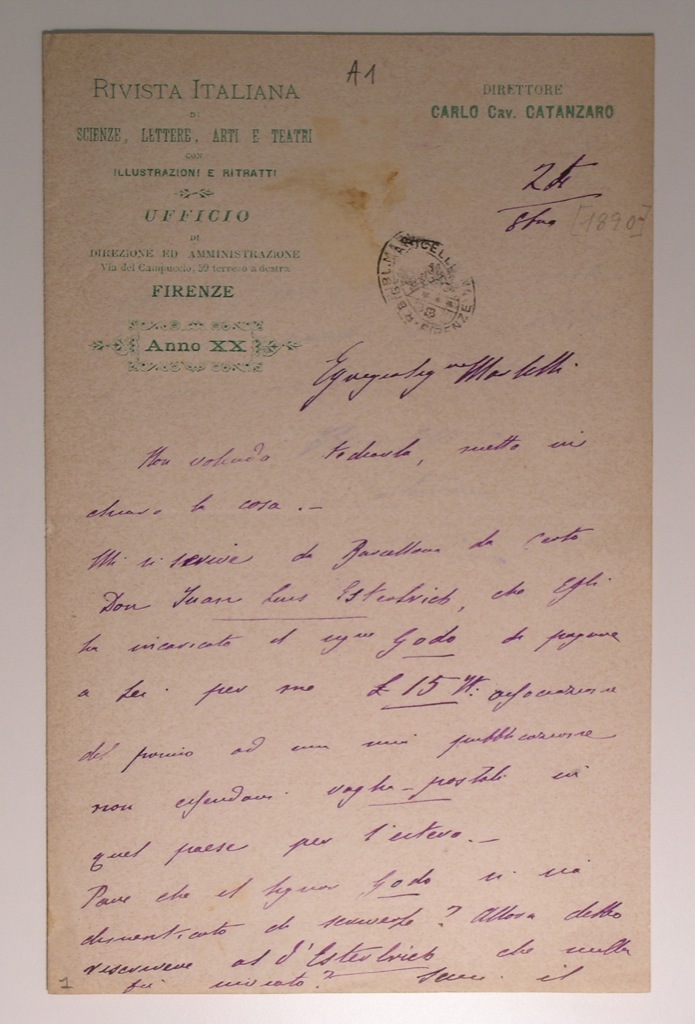 A1
RIVISTA ITALIANA
DI
SCIENZE, LETTERE, ARTI E TEATRI
CON
ILLUSTRAZIONI E RITRATTI
UFFICIO
DI
DIREZIONE ED AMMINISTRAZIONE
Via del Campuccio, 59 terreno a destra
FIRENZE
Anno XX
DIRETTORE
CARLO Cav. CATANZARO
2
8bre [1890]
R. BIBL. MARUCELLIANA FIRENZE
Egregio Sigre Martelli
Non volendo, metto in
chiaro la cosa. -
Mi si scrive da Barcellona da certo
Don Juan Luis Estelrich, che Egli
ha incaricato il Godo di pagare
a Lei per me £ 15 It: associazione
del premio ad una mia pubblicazione
non essendovi vaglia-postali in
quel paese per l'estero. -
Pare che il Signor Godo si sia
dimenticato di scriverle? Allora debbo
riscrivere all'Estelrich che nulla
fu inviato? il
1